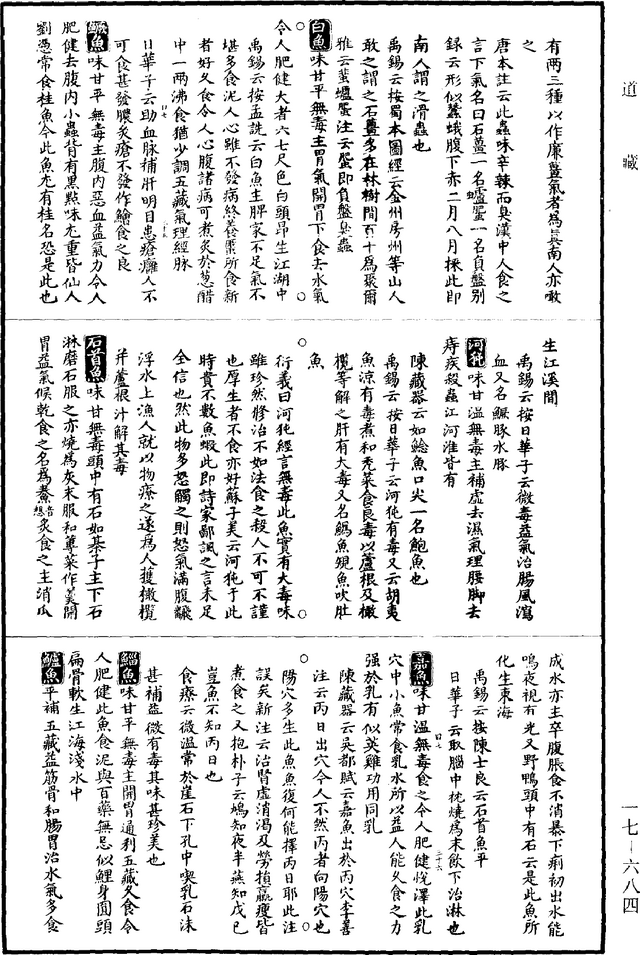 道藏
有兩三種以作廉薑氣者為真南人亦噉
之
唐本註云此蟲味辛辣而臭漢中人食之
言下氣名曰石薑一名蠦蜰一名負盤別
録云形似蠶蛾腹下赤二月八月採此即
南人謂之滑蟲也
禹錫云按蜀本圖經云金州房州等山人
敢之謂之石薑多在林樹間百十為聚爾
雅云蜚蠦蜰注云蜰即負盤臭蟲
白魚味甘平無毒主胃氣開胃下食去水氣
令人肥健大者六七尺色白頭昂生江湖中
禹錫云按孟詵云白魚主脾家不足氣不
堪多食泥人心雖不發病終養䘌所食新
者好久食令人心腹諸病可煮炙於葱醋
中一兩沸食猶少調五藏氣理經脉
日華子云助血脉補肝明目患瘡癤人不
可食甚發膿炙瘡不發作鱠食之良
鱖魚味甘平無毒主腹內惡血益氣力令人
肥健去腹內小蟲背有黑點味尤重昔仙人
劉憑常食桂魚今此魚尤有桂名恐是此也
生江溪間
禹錫云按日華子云微毒益氣治腸風瀉
血又名鱖豚水豚
河㹠味甘溫無毒主補虛去濕氣理腰脚去
痔疾殺蟲江河淮皆有
陳藏器云如鯰魚口尖一名鮠魚也
禹錫云按日華子云河㹠有毒又云胡夷
魚涼有毒煮和禿菜食良毒以蘆根及橄
欖等解之肝有大毒又名鰢魚䂓魚吹肚
魚
衍義曰河㹠經言無毒此魚實有大毒味
雖珍然修治不如法食之殺人不可不謹
也厚生者不食亦好蘇子美云河㹠于此
時貴不數魚蝦此即詩家鄙諷之言未足
全信也然此物多怒觸之則怒氣滿腹飜
浮水上漁人就以物撩之遂為人獲橄欖
并蘆根汁解其毒
石首魚味甘無毒頭中有石如棊子主下石
淋磨石服之亦燒為灰末服和蓴菜作羹開
胃益氣候乾食之名為鯗音想炙食之主消瓜
成水亦主卒腹脹食不消暴下痢初出水能
鳴夜視有光又野鴨頭中有石云是此魚所
化生東海
禹錫云按陳士良云石首魚平
日華子云取腦中枕燒為末飲下治淋也
嘉魚味甘溫無毒食之令人肥健悅澤此乳
穴中小魚常食乳水所以益人能久食之力
強於乳有似英雞功用同乳
陳藏器云吳都賦云嘉魚出於丙穴李善
注云丙日出穴今人不然丙者向陽穴也
陽穴多生此魚魚復何能擇丙日耶此注
誤矣新注云治腎虛消渴及勞損羸瘦皆
煮食之又抱朴子云鴆知夜半燕知戊巳
豈魚不知丙日也
食療云微溫常於崖石下孔中喫乳石沫
甚補益微有毒其味甚珍美也
鯔魚味甘平無毒主開胃通利五藏久食令
人肥健此魚食泥與百藥無忌似鯉身圓頭
扁骨軟生江海淺水中
鱸魚平補五藏益筋骨和腸胃治水氣多食
一七－六八四